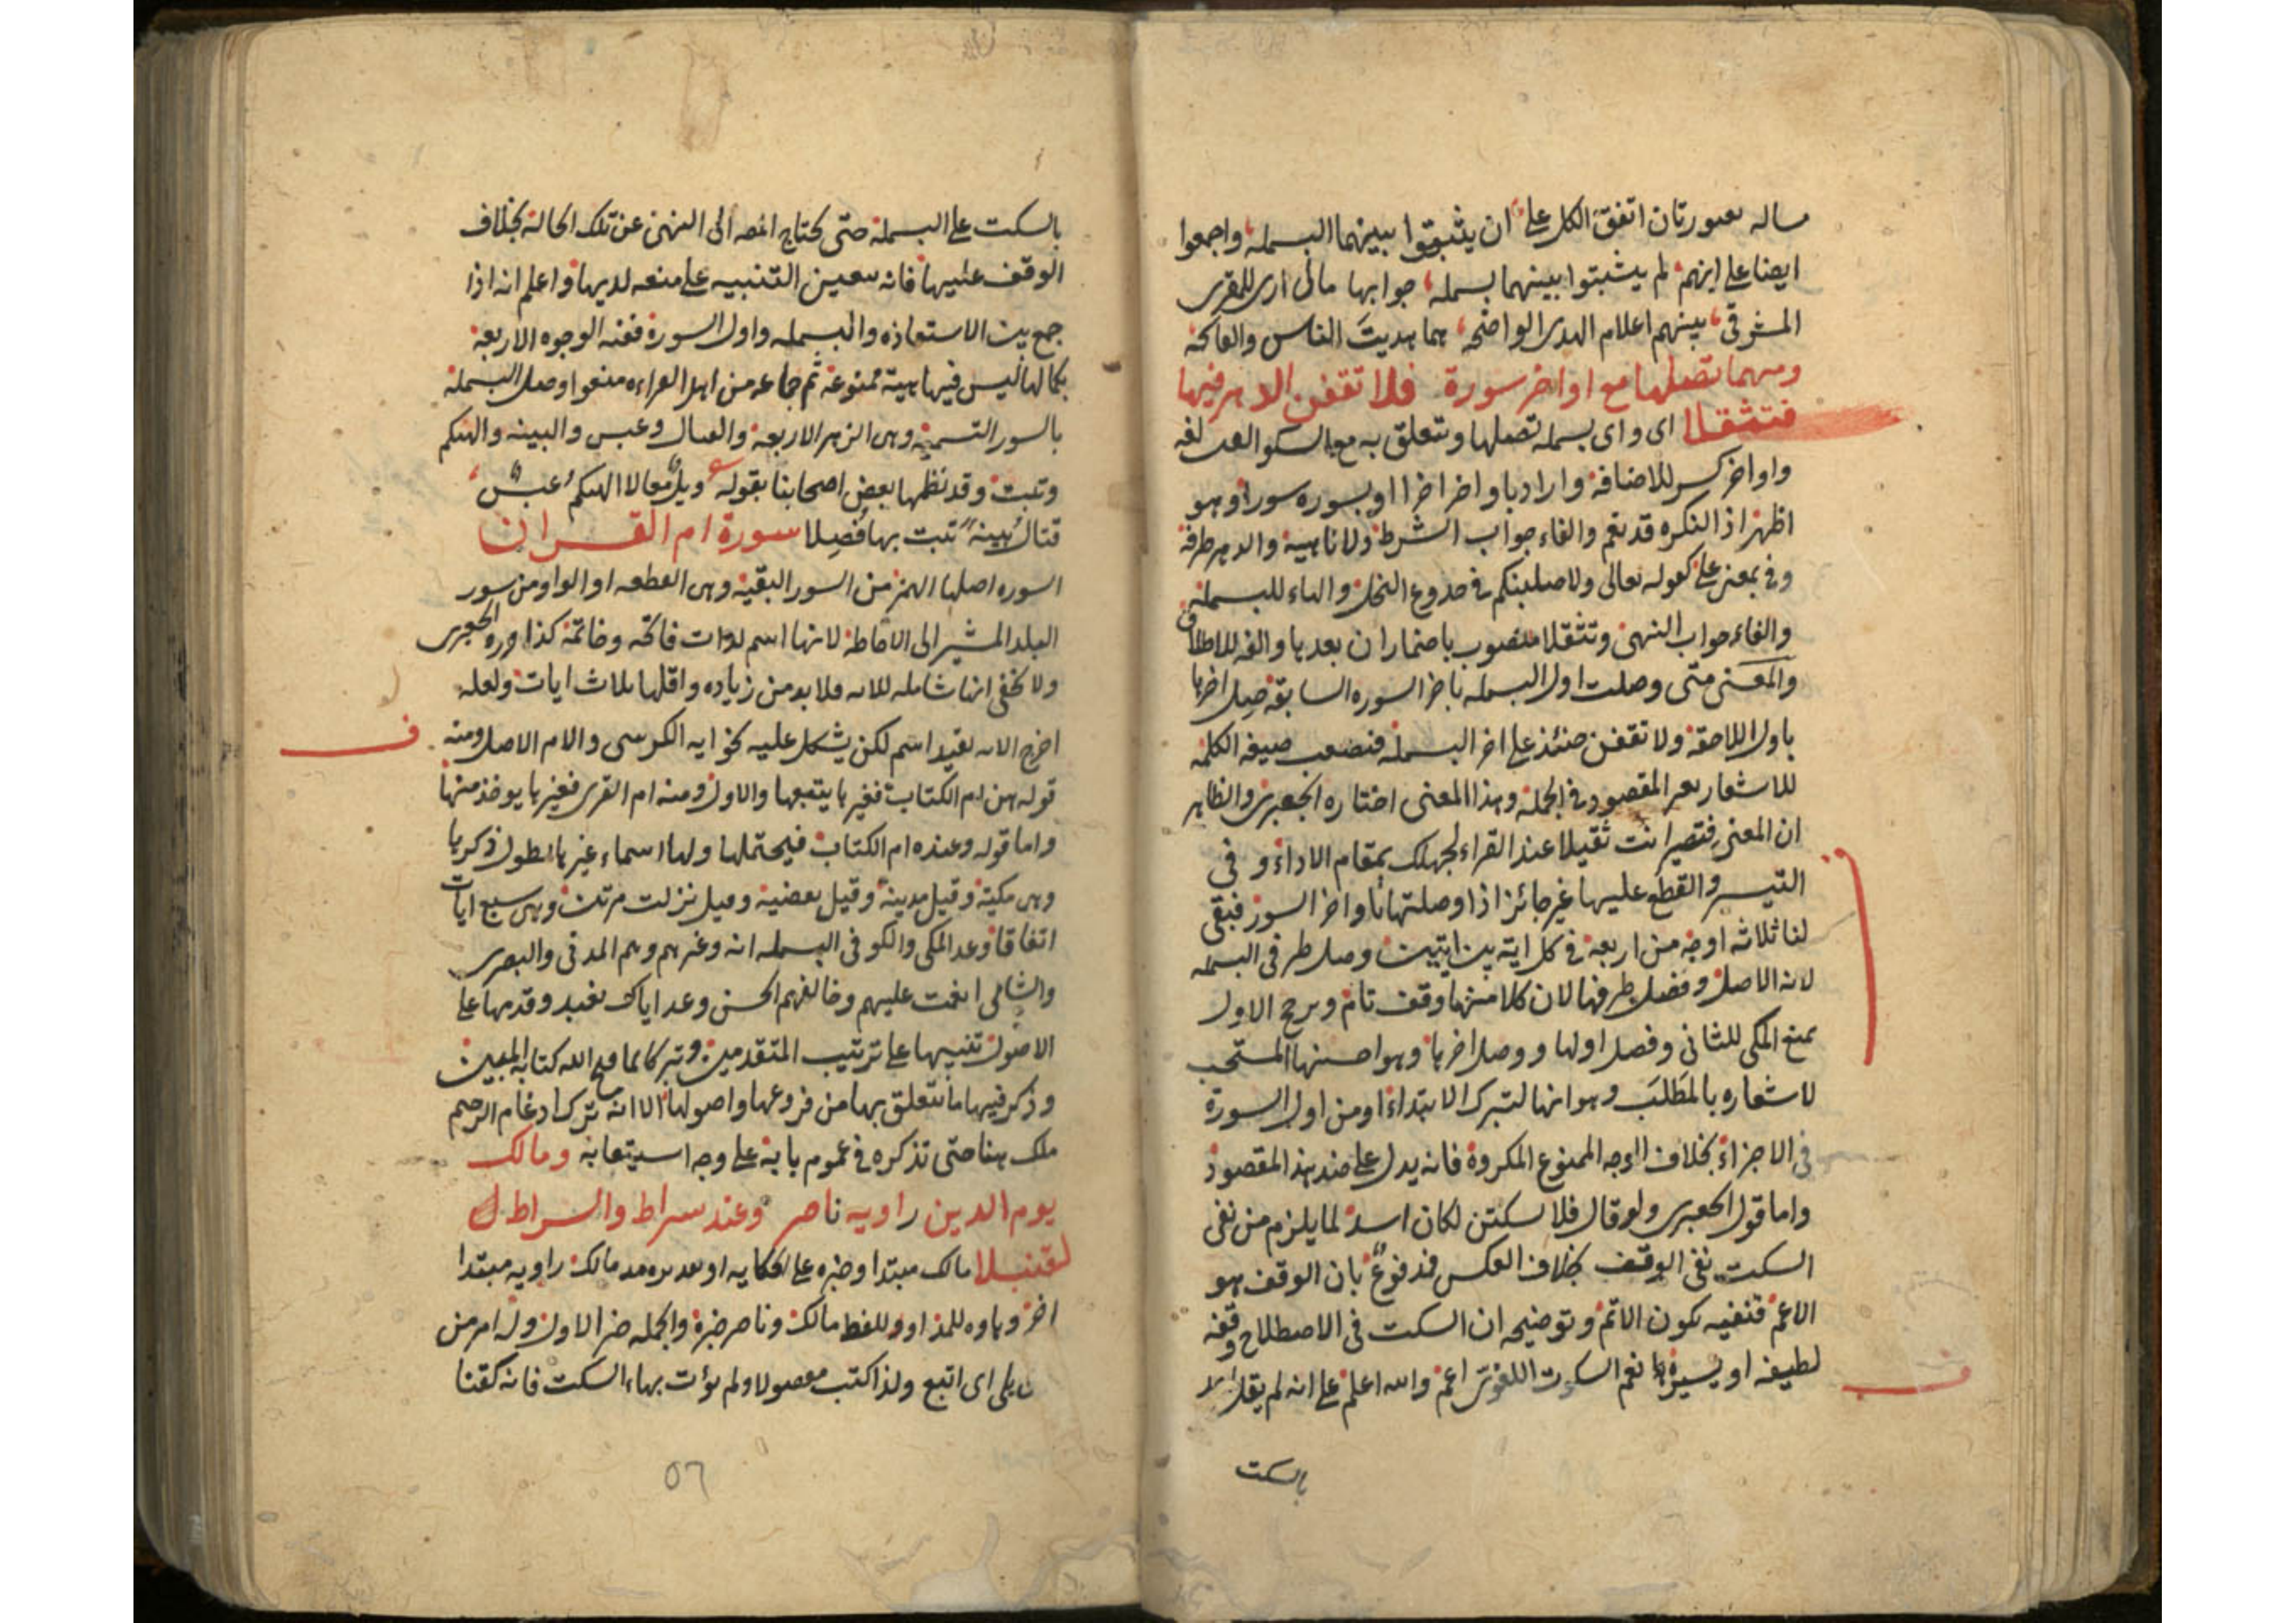 ساله بصورتان اتفق الكل على ان يثبتوا بينهما البسمله واجمعوا
ايضا على انهم لم يثبتوا بينهما بسمله جوابها مالى ارى للمقرى
المشرقى بينهم اعلام الهدى الواضحه هما هديت الناس والفاتحه
ومهما تصلها مع اواخر سورة فلا تقفن الدهر فيها
فتثقلا اى واى بسمله تصلها وتتعلق به مع لغه
واواخر كسر للاضافة واراد باواخر اخرا او بسوره سورا وهو
اظهر اذ النكره قد تعم والفاء جواب الشرط ولا ناهيه والدهر ظرفه
وفى بمعنى على كقوله تعالى ولاصلبنكم فى جذوع النخل والهاء للبسملة
والفاء جواب النهى وتثقلا منصوب باضمار ان بعدها والفه للاطلاق
والمعنى متى وصلت اول البسمله باخر السوره السابقه صل اخرها
باول اللاحقة ولا تقفن حنئذ على اخر البسملة فتصعب صيغه الكلمه
للاشعار بغير المقصود فى الجملة وهذا المعنى اختاره الجعبرى والظاهر
ان المعنى فتصير انت ثقيلا عند القراء لجهلك بمقام الاداء وفى
التيسير والقطع عليها غير جائز اذا وصلتها باواخر السور فبقى
لنا ثلاثه اوجه من اربعة فى كل اية بين ايتين وصل طرفى البسمله
لانه الاصل وفصل طرفها لان كلا منهما وقف تام ويرجح الاول
بمنع المكى للثانى وفصل اولها ووصل اخرها وهو احسنها المستحب
لاشعاره بالمطلب وهو انها لتبرك الابتداء او من اول السورة
فى الاجزاء بخلاف الوجه الممنوع المكروة فانه يدل على ضد هذ المقصود
واما قول الجعبرى ولو قال فلا سكتن لكان اسد لما يلزم من نفى
السكت نفى الوقف بخلاف العكس فمدفوع بان الوقف هو
الاعم فنفيه يكون الاتم وتوضيحه ان السكت فى الاصطلاح وقفه
لطيفه او يسيرة نعم السكوت اللغوى اعم والله اعلم على انه لم يقل احد
بالسكت
بالسكت على البسملة حتى يحتاج المصه الى النهى عن تلك الحالة بخلاف
الوقف عليها فانه يتعين التنبيه على منعه لديها واعلم انه اذا
جمع بين الاستعاذه والبسمله واول السورة ففيه الوجوه الاربعة
بكمالها ليس فيها هيئة ممنوعة ثم جماعه من اهل القراءه منعوا وصل البسملة
بالسور التسمية وهى الزهر الاربعة والقتال وعبس والبينه والهيكم
وتبت وقد نظمها بعض اصحابنا بقوله ويل تعالا الهيكم عبس
قتال بينة تبت بها فصلا سورة ام القران
السوره اصلها الهمز من السور البقية وهى القطعه او الواو من سور
البلد المشير الى الاحاطة لانها اسم لايات فاتحه وخاتمة كذا اورده الجعبرى
ولا يخفى انها شامله للايه فلابد من زياده واقلها ثلاث ايات ولعله
اخرج الايه بقيد اسم لكن يشكل عليه نحو ايه الكرسى والام الاصل ومنه
قوله هن ام الكتاب فغيرها يتبعها والاول ومنه ام القرى فغيرها يوخذ منها
واما قوله وعنده ام الكتاب فيحتملها ولها اسماء غيرها يطول ذكرها
وهى مكية وقيل مدينة وقيل بعضية وقيل نزلت مرتين وهى سبع ايات
اتفاقا وعد المكى والكوفى البسمله اية وغيرهم وهم المدنى والبصرى
والشامى انعمت عليهم وخالفهم الحسن وعد اياك نعبد وقدمها على
الاصول تنبيها على ترتيب المتقدمين وتبركا بما فتح الله كتابه المبين
وذكر فيها ما يتعلق بها من فروعها واصولها الا انه ترك ادغام الرحيم
ملك هنا حتى تذكره فى عموم بابه على وجه استيعابه ومالك
يوم الدين راويه ناصر وعند سراط والسراط ل
لقنبلا مالك مبتدا وخبره على الحكايه او مالك راويه مبتدا
اخر وهاوه للمذ او وللفط مالك وناصر خبره والجمله خبر الاول ول امر من
يلى اى اتبع ولذا كتب مفصولا ولم يؤت بهاء السكت فانه كقنا
٥٦